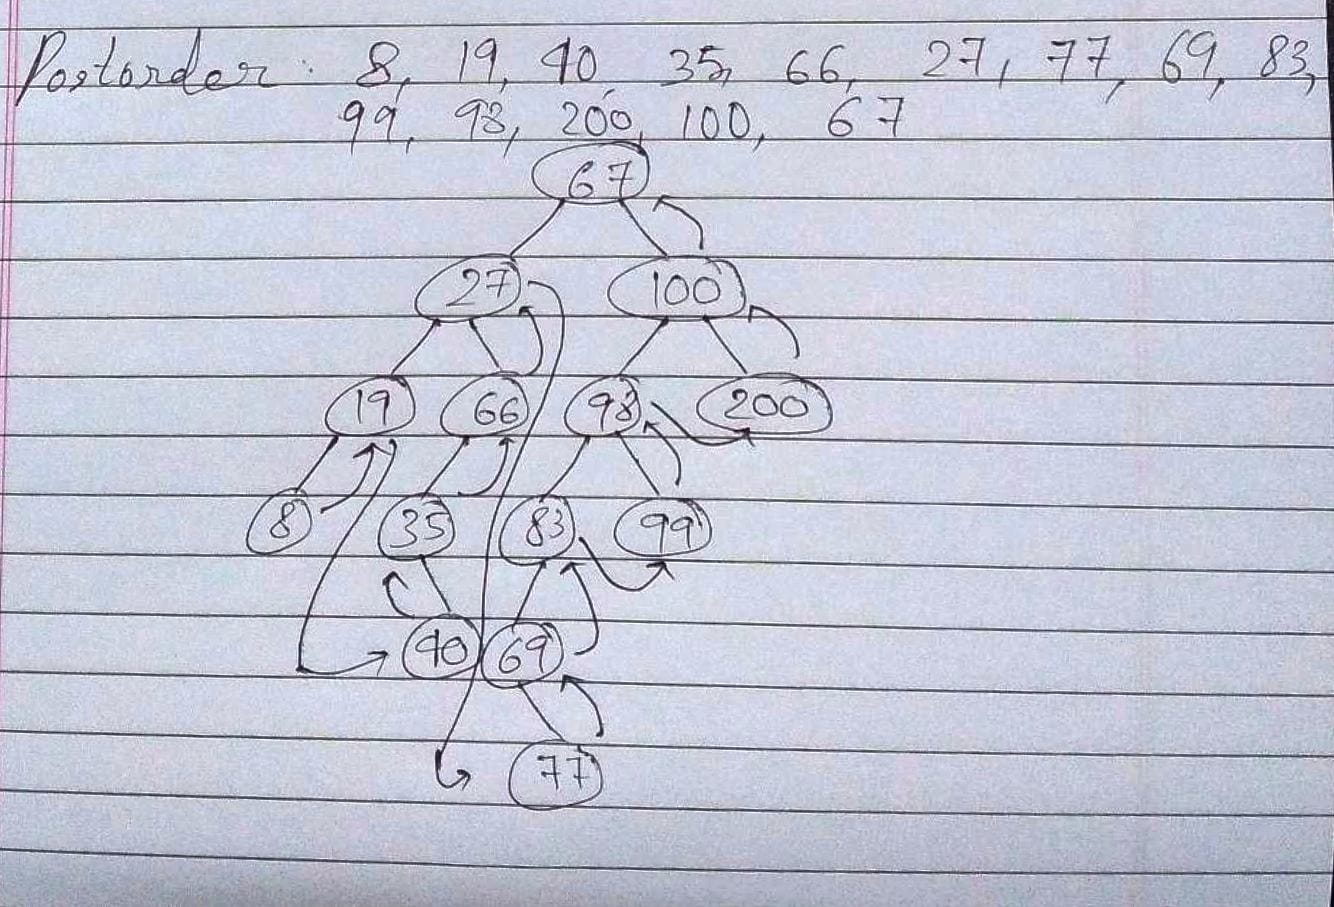 Postorder: 8, 19, 40, 35, 66, 27, 77, 69, 83,
99, 98, 200, 100, 67
67
27 100
19 66 98 200
8 35 83 99
40 69
77